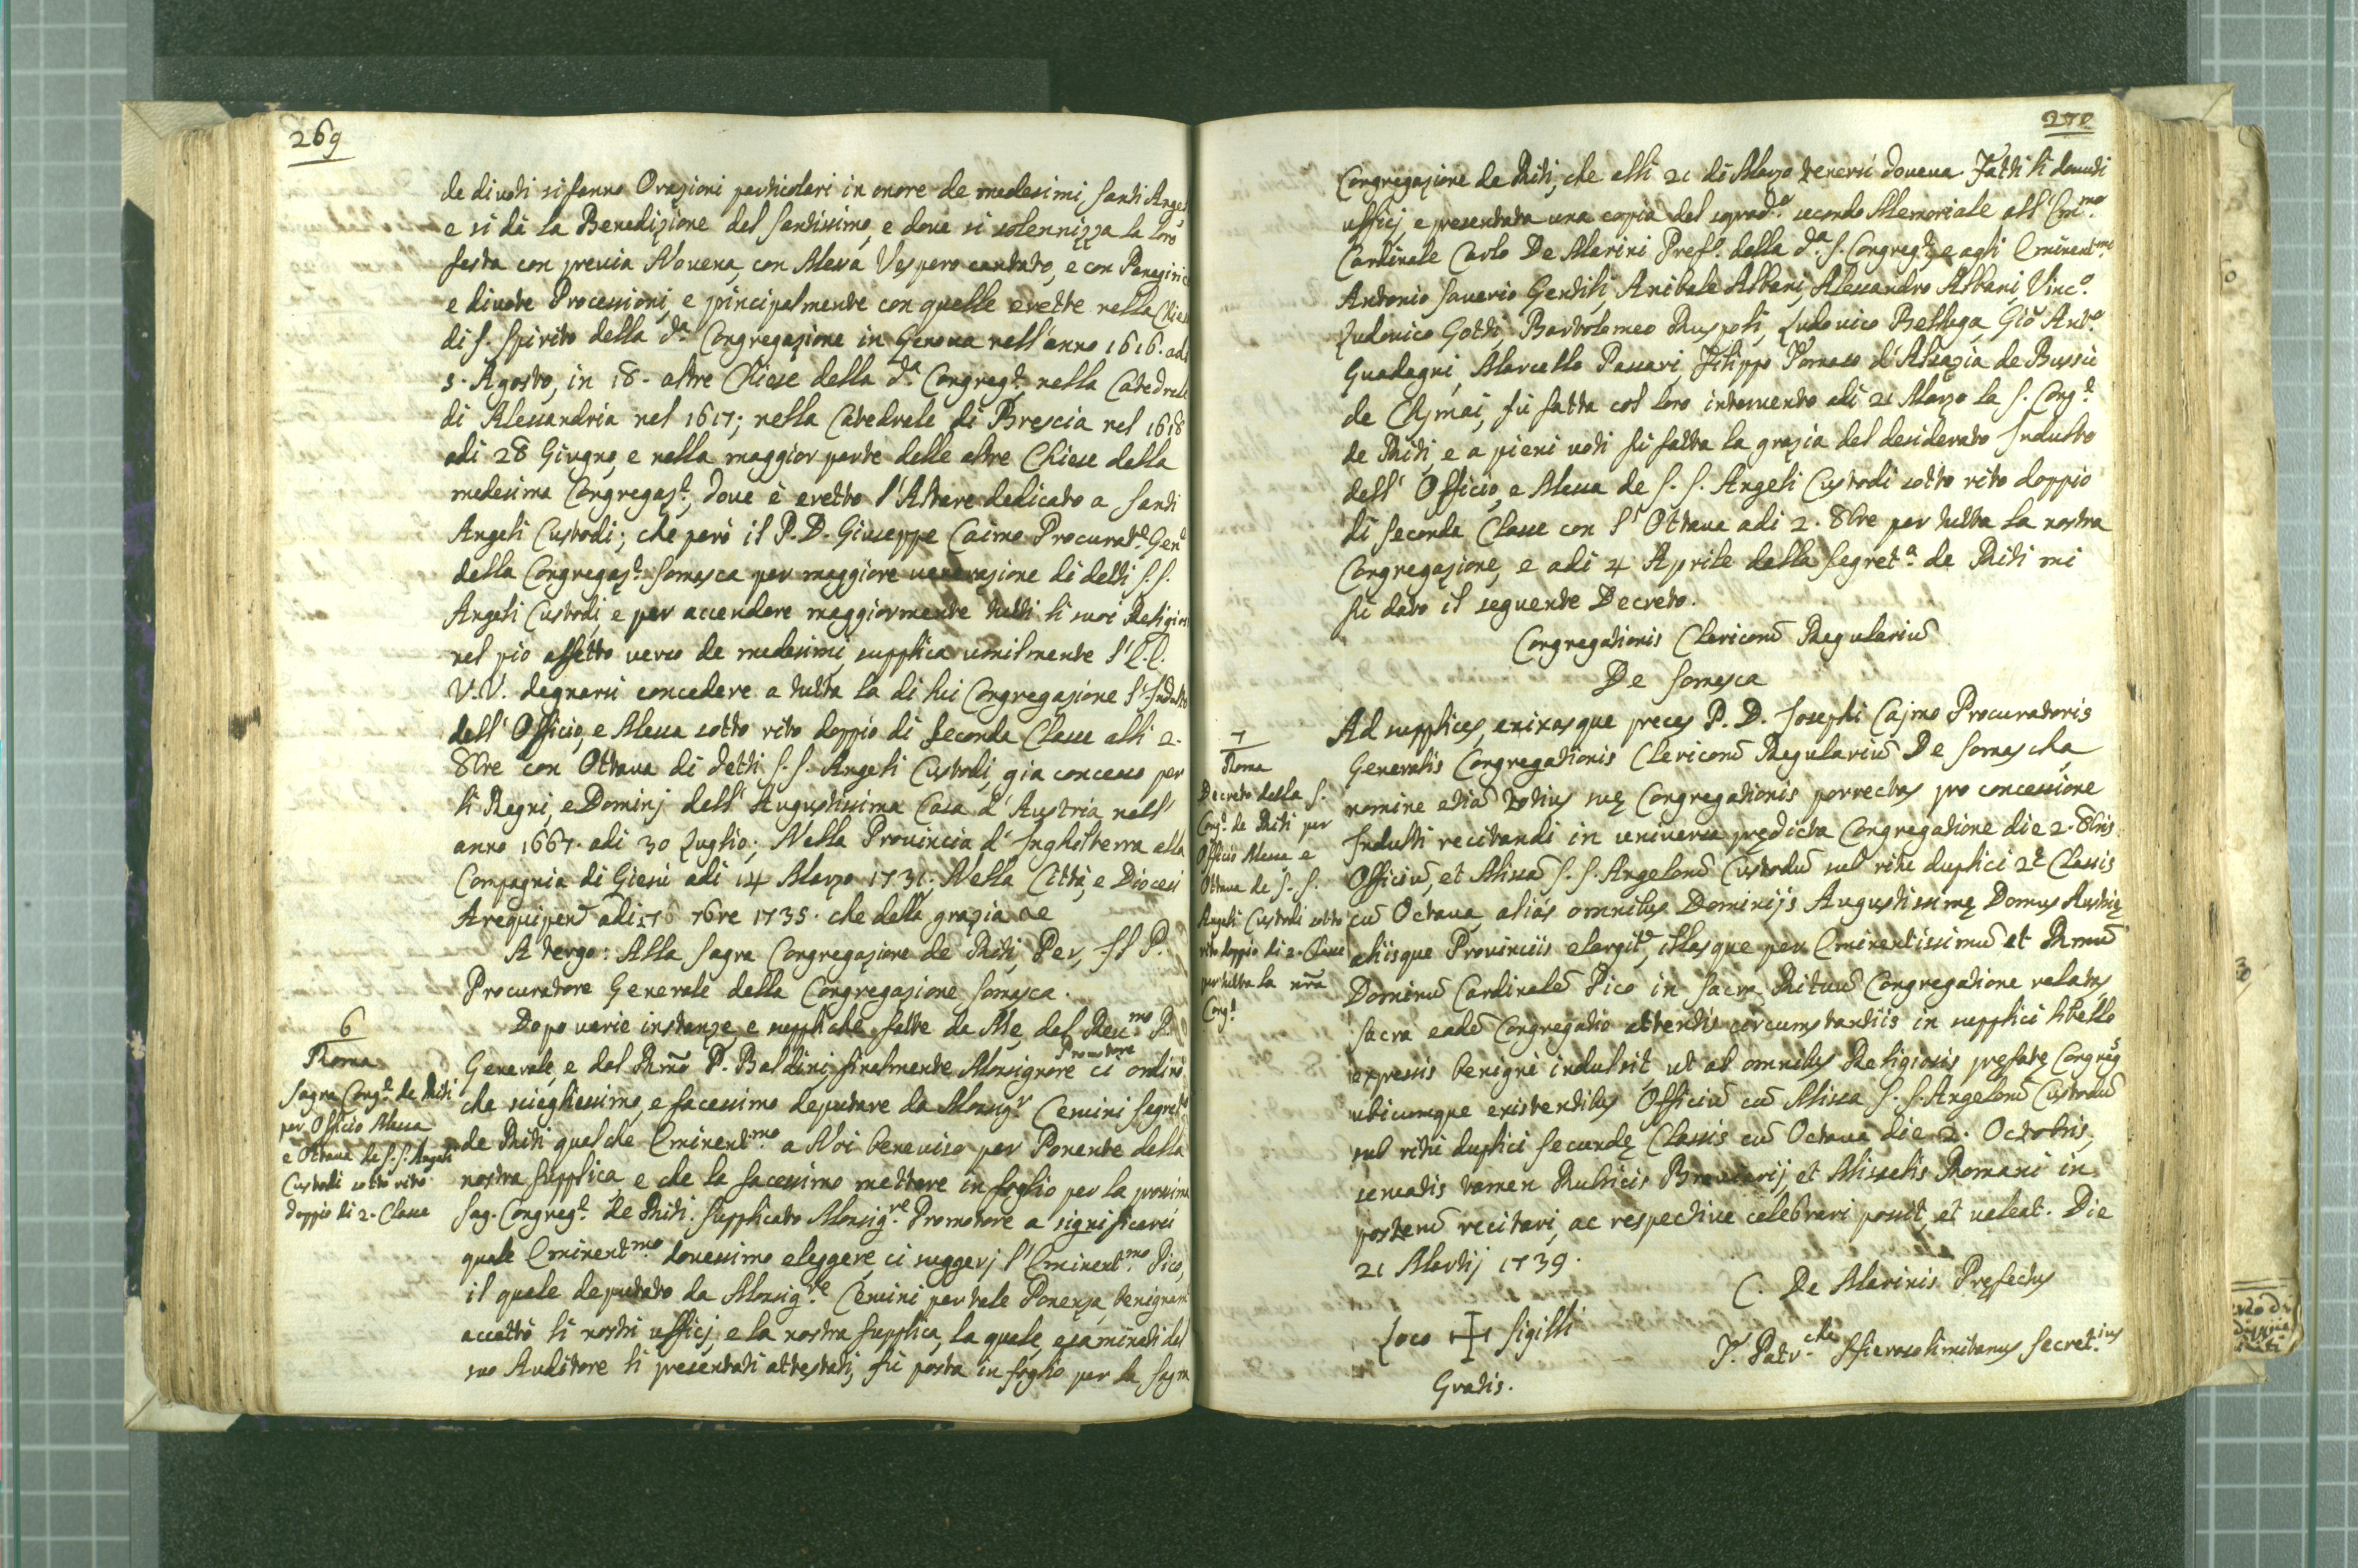 269
de divoti si fanno Orazioni particolari in onore de medesimi Santi Angeli
e si dà la Benedizione del Santissimo, e dove si solennizza la loro
festa con previa Novena, con Messa Vespero cantato, e con Panegirici
e divote Processioni, e principalmente con quelle erette nella Chiesa
di S. Spirito della d.ª Congregazione in Genova nell'anno 1616. adi
5. Agosto, in 18. altre Chiese della d.ª Congreg.e nella Catedrale
di Alessandria nel 1617; nella Catedrale di Brescia nel 1618
adi 28 Giugno, e nella maggior parte delle altre Chiese della
medesima Congregaz.e, dove è eretto l'Altare dedicato a Santi
Angeli Custodi; che però il P. D. Giuseppe Caimo Procurat.e Gen.e
della Congregaz.e Somasca per maggiore venerazione di detti S.S.
Angeli Custodi, e per accendere maggiormente tutti li suoi Religiosi
nel pio affetto verso de medesimi, supplica umilmente l'E.E.
V.V. degnarsi concedere a tutta la di lui Congregazione l'Indulto
dell'Officio, e Messa sotto rito doppio di seconda Classe alli 2.
8bre con Ottava di detti S.S. Angeli Custodi, gia concesso per
li Regni, e Dominj dell'Augustissima Casa d'Austria nell'
anno 1667. adi 30 Luglio; Nella Provincia d'Inghilterra alla
Compagnia di Giesù adi 14 Marzo 1731; Nella Città, e Diocesi
Arequipen adi 7bre 1735. che della grazia &c
A tergo: Alla Sagra Congregazione de Riti, Per, Il P.
Procuratore Generale della Congregazione Somasca.
6
Roma
Sagra Cong.e de Riti
per Officio Messa
e Ottava de S.S. Angeli
Custodi sotto rito
doppio di 2.ª Classe
Dopo varie instanze, e suppliche fatte da Me, dal Reu.mo P.
Generale, e dal Rmo P. Baldini, finalmente Monsignore Promotore ci ordinò
che scieglessimo, e facessimo deputare da Monsig.r Cervini Segret.o
de Riti qualche Eminent.mo a Noi beneviso per Ponente della
nostra supplica e che la facessimo mettere in foglio per la prossima
Sag. Congreg.e de Riti. Supplicato Monsig.re Promotore a significarci
quale Eminent.mo dovessimo eleggere, ci suggerj l'Eminent.mo Pico,
il quale deputato da Monsig.re Cervini per tale Ponenza, benignam
accettò li nostri ufficj, e la nostra supplica, la quale, esaminati dal
suo Auditore li presentati attestati, fù posta in foglio per la Sagra
270
Congregazione de Riti, che alli 21 di Marzo tenersi doveva. Fatti li dovuti
ufficj, e presentata una copia del soprad.o secondo Memoriale all'Em.mo
Cardinale Carlo De Marini Pref.o della d.ª S. Congreg.e, e agli Eminent.mi
Antonio Saverio Gentili, Anibale Albani, Alessandro Albani, Vinc.o
Ludovico Gotti, Bartolomeo Ruspoli, Ludovico Belluga, Giò Ant.o
Guadagni, Marcello Passari Filippo Tomaso d'Alsazia de Bussù
de Chjmai, fù fatta col loro intervento adi 21 Marzo la S. Cong.e
de Riti, e a pieni voti fù fatta la grazia del desiderato Indulto
dell'Officio, e Messa de S.S. Angeli Custodi sotto rito doppio
di seconda Classe con l'Ottava adi 2. 8bre per tutta la nostra
Congregazione, e adi 4 Aprile dalla Segret.ª de Riti mi
fù dato il seguente Decreto.
Congregationis Clericorū Regulariū
De Somasca
7
Roma
Decreto della S.
Cong.e de Riti per
Officio Messa e
Ottava de S.S.
Angeli Custodi sotto
rito doppio di 2.ª Classe
per tutta la nrã
Cong.e
Ad supplices, enixasque preces P. D. Josephi Cajmo Procuratoris
Generalis Congregationis Clericorū Regulariū De Somascha
nomine etiā totius suę Congregationis porrectas pro concessione
Indulti recitandi in universa prędicta Congregatione die 2. 8bris
Officiū, et Missā S.S. Angelorū Custodū sub ritu duplici 2.ę Classis
cū Octava, aliàs omnibus Dominijs Augustissimę Domus Austrię
aliisque Provinciis elargitę, illasque per Eminentissimū et Rmū
Dominū Cardinalē Pico in Sacra Rituū Congregatione relatas,
Sacra eadē Congregatio attentis circumstantiis in supplici libello
expressis benignè indulsit, ut ab omnibus Religiosis pręfatę Congregs
ubicumque existentibus Officiū cū Missa S.S. Angelorū Custodū
sub ritu duplici secundę Classis cū Octava die 2. Octobris,
servatis tamen Rubricis Breviarij, et Missalis Romani in
posterū recitari, ac respective celebrari possit, et valeat. Die
21 Martij 1739.
C. De Marinis Pręfectus
Loco ✠ Sigilli
T. Patr.cha Hierosolimitanus Secret.ius
Gratis.